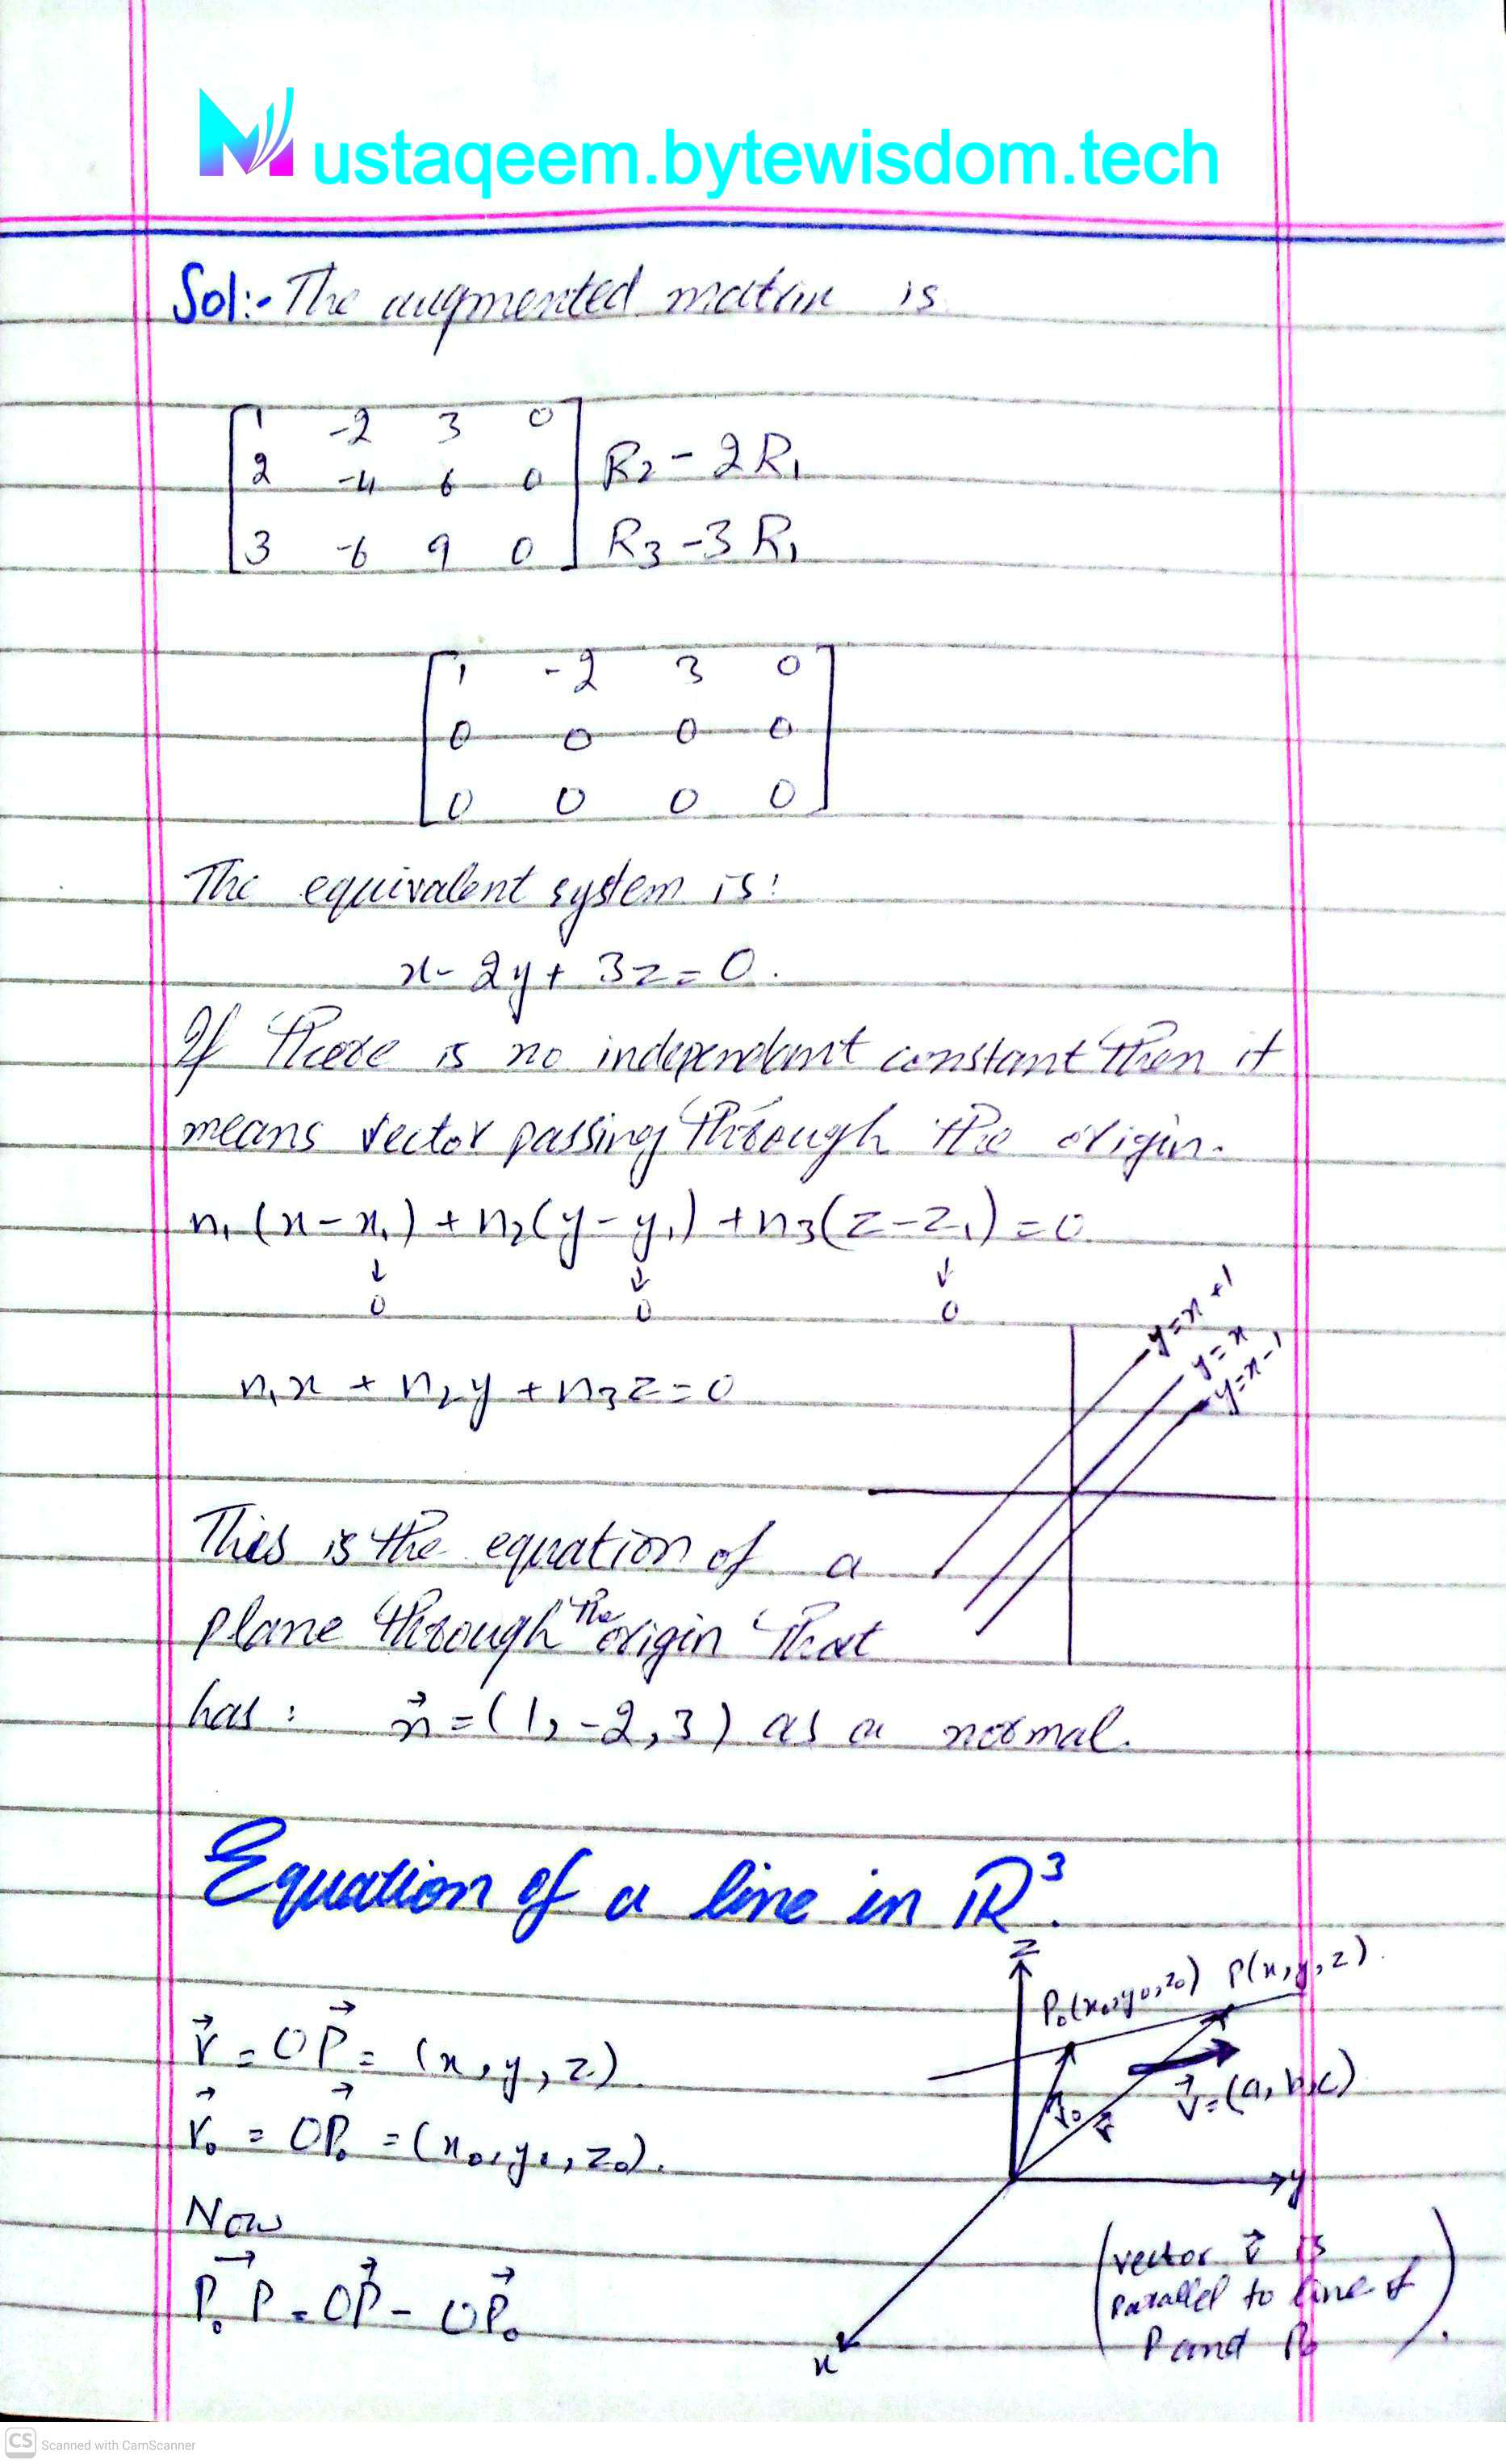 Mustaqeem.bytewisdom.tech
Sol:- The augmented matrix is
1 -2 3 0
2 -4 6 0 R₂ - 2R₁
3 -6 9 0 R₃ - 3R₁
1 -2 3 0
0 0 0 0
0 0 0 0
The equivalent system is:
x - 2y + 3z = 0.
If there is no independent constant then it
means vector passing through the origin.
n₁(x - x₁) + n₂(y - y₁) + n₃(z - z₁) = 0
↓ ↓ ↓
0 0 0
y = x + 1
y = x
y = x - 1
n₁x + n₂y + n₃z = 0
This is the equation of a
plane through the origin that
has: n⃗ = (1, -2, 3) as a normal.
Equation of a line in ℝ³.
z
P₀(x₀, y₀, z₀) P(x, y, z)
r⃗ = OP⃗ = (x, y, z)
v⃗ = (a, b, c)
r₀ r
r⃗₀ = OP⃗₀ = (x₀, y₀, z₀).
y
Now
(vector v⃗ is
parallel to line of
P and P₀).
P₀P⃗ = OP⃗ - OP⃗₀
x
CS Scanned with CamScanner